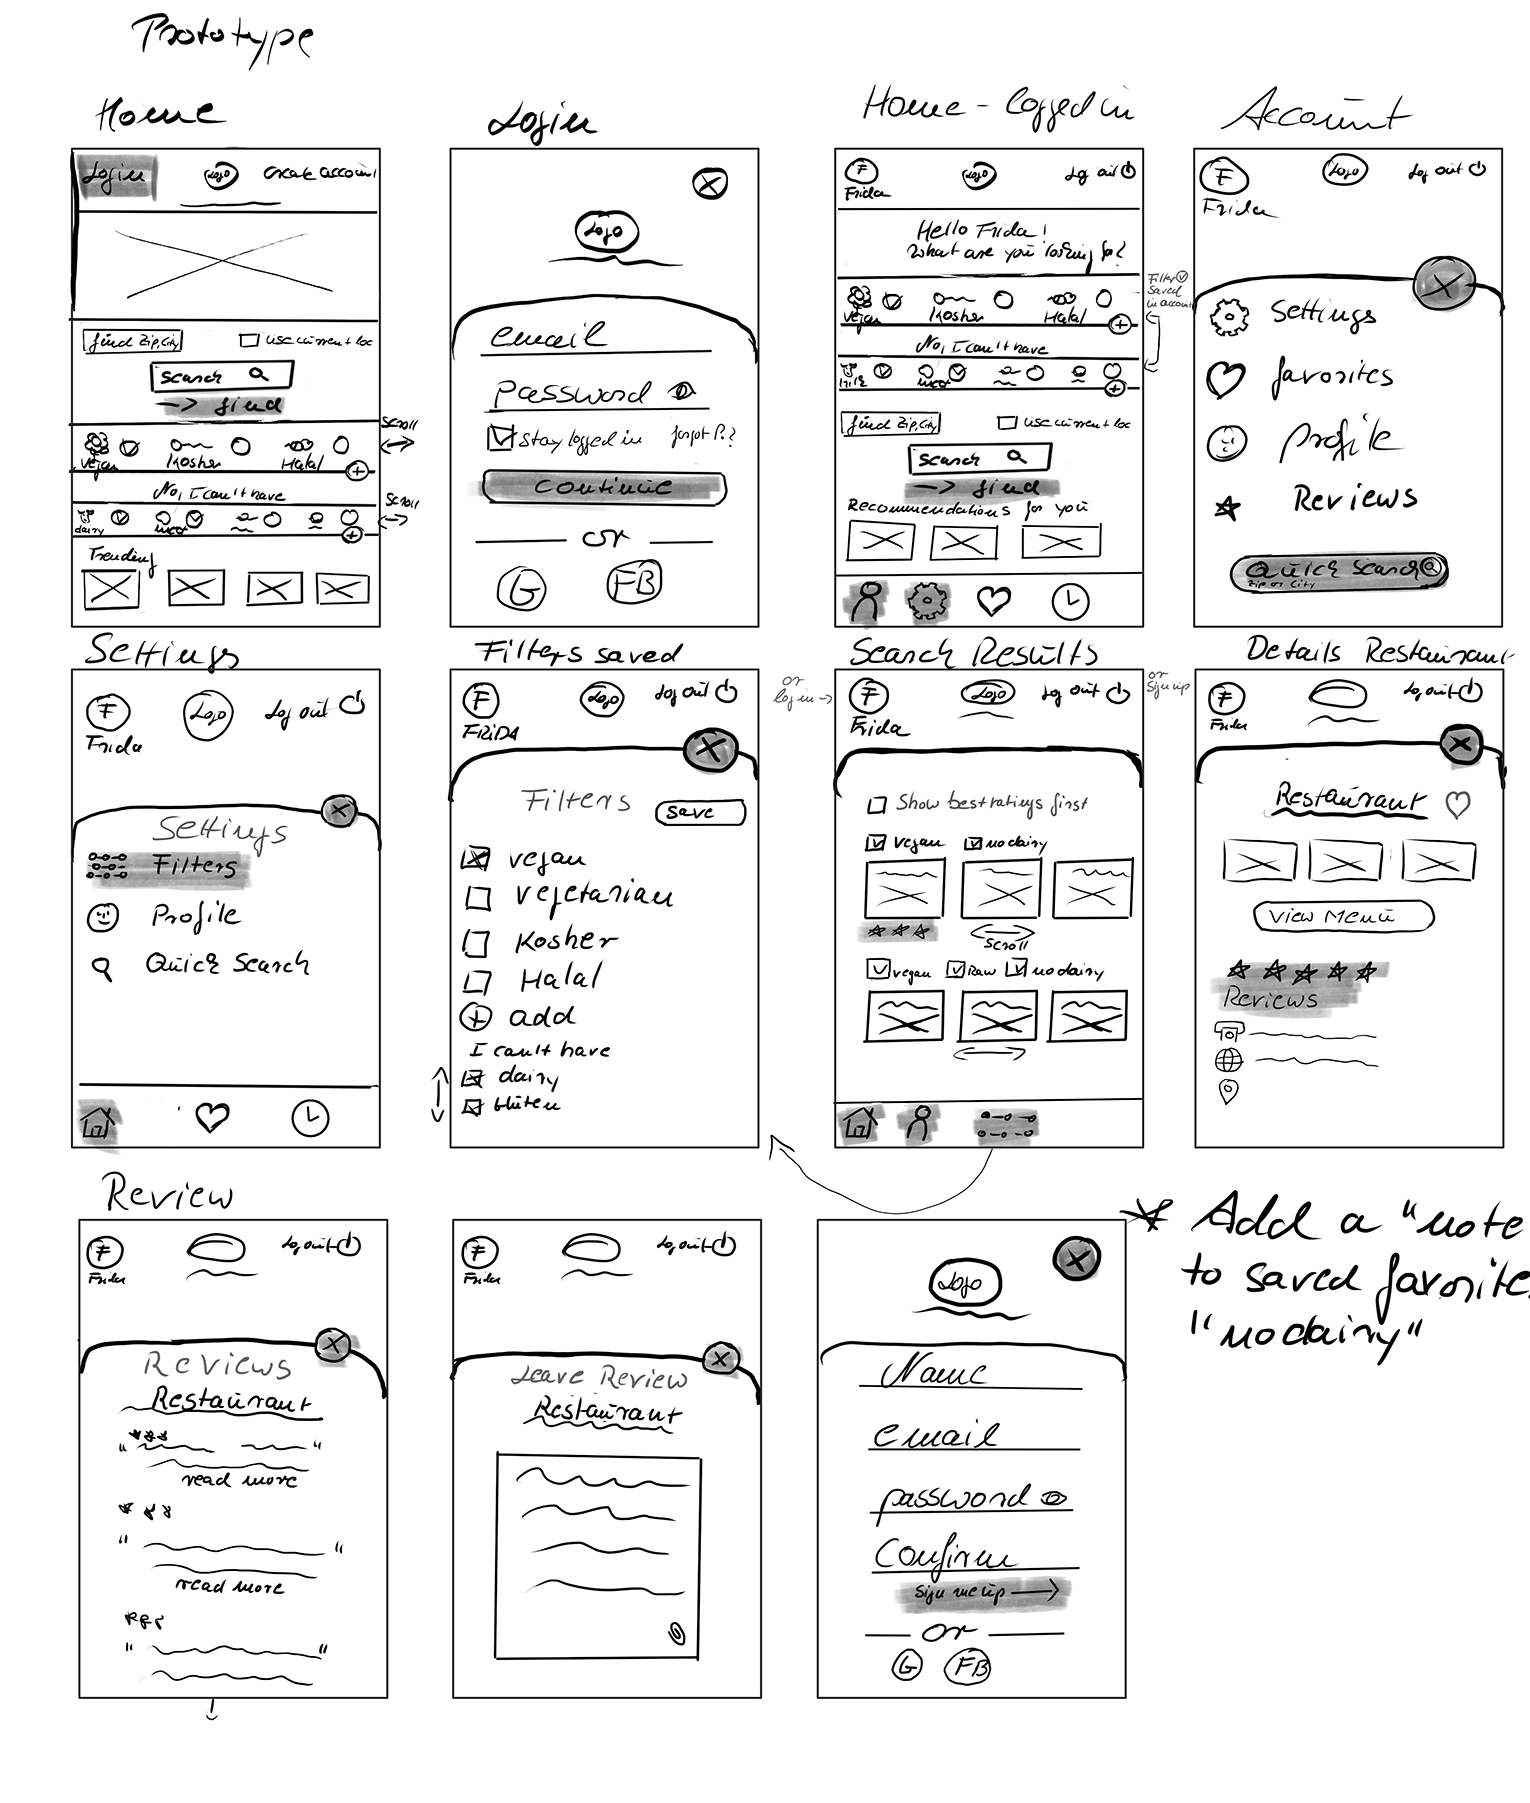 Prototype
Home
Login
Logo
create account
find Zip, City
use current loc
search
→ find
vegan
Kosher
Halal
scroll
No, I can't have
dairy
meat
scroll
Trending
Login
Logo
email
password
stay logged in
forgot P.?
continue
or
G
FB
Home - logged in
F
Frida
Logo
Log out
Hello Frida!
What are you looking for?
Filter
saved
in account
vegan
Kosher
Halal
No, I can't have
meat
find Zip, City
use current loc
search
→ find
Recommendations for you
Account
F
Frida
Logo
Log out
Settings
favorites
Profile
Reviews
Quick Search
Zip or City
Settings
F
Frida
Logo
Log out
Settings
Filters
Profile
Quick Search
Filters saved
F
FRiDA
Logo
Log out
Filters
save
vegan
vegetarian
Kosher
Halal
add
I can't have
dairy
Gluten
or
log in →
Search Results
F
Frida
Logo
Log out
Show best ratings first
vegan
no dairy
scroll
vegan
Raw
no dairy
or
Sign up
Details Restaurant
F
Frida
Log out
Restaurant
View Menu
Reviews
Review
F
Frida
Log out
Reviews
Restaurant
read more
read more
F
Frida
Log out
Leave Review
Restaurant
Logo
Name
email
password
Confirm
Sign me up →
or
G
FB
* Add a "note
to saved favorites
"no dairy"